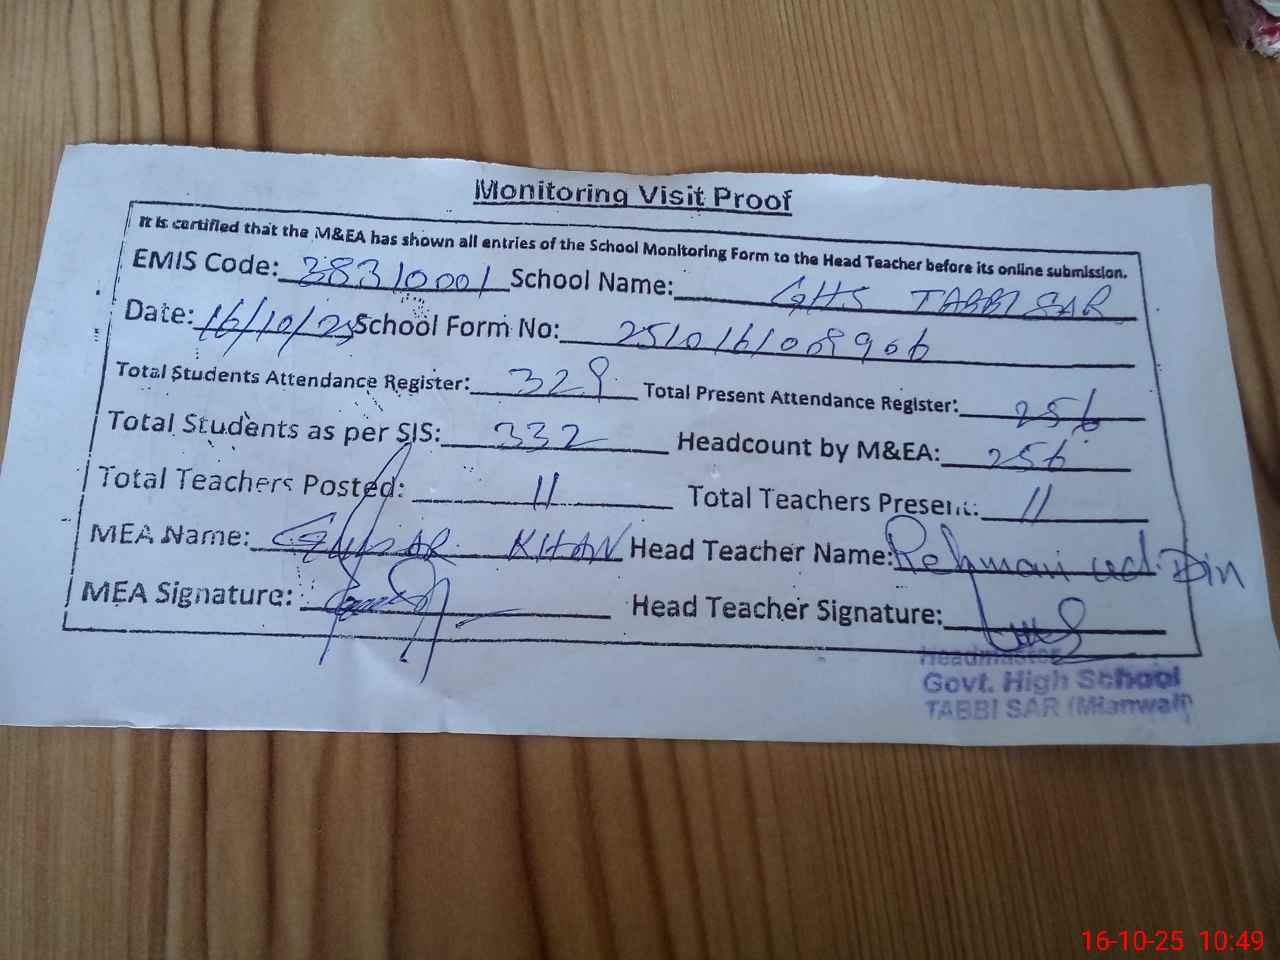 Monitoring Visit Proof
It is certified that the M&EA has shown all entries of the School Monitoring Form to the Head Teacher before its online submission.
EMIS Code: 38310001 School Name: GHS TABBI SAR
Date: 16/10/25 School Form No: 251016/008906
Total Students Attendance Register: 329 Total Present Attendance Register: 256
Total Students as per SIS: 332 Headcount by M&EA: 256
Total Teachers Posted: 11 Total Teachers Present: 11
MEA Name: KHAN Head Teacher Name: Rehman ud Din
MEA Signature: Head Teacher Signature:
Headmaster
Govt. High School
TABBI SAR (Mianwali)
16-10-25 10:49